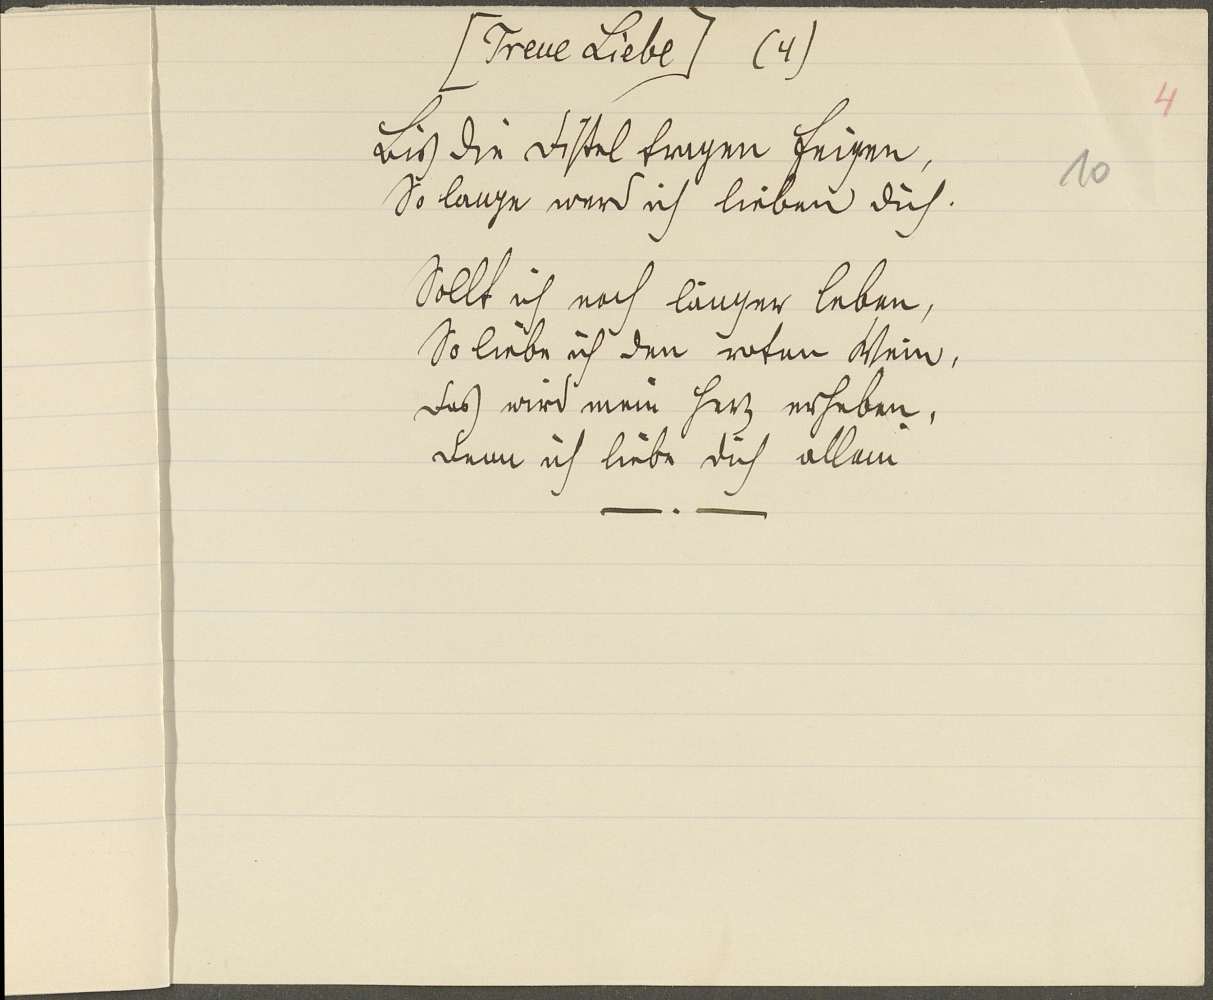 [Treue Liebe] (4)
4
10
Bis die Distel tragen Feigen,
So lange werd ich lieben dich.
Sollt ich noch länger leben,
So liebe ich den roten Wein,
Das wird mein Herz erheben,
Denn ich liebe dich allein